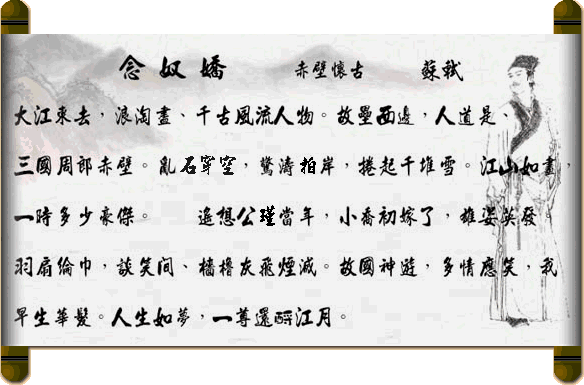 念奴嬌 赤壁懷古 蘇軾
大江東去，浪淘盡、千古風流人物。故壘西邊，人道是、
三國周郎赤壁。亂石穿空，驚濤拍岸，捲起千堆雪。江山如畫，
一時多少豪傑。 遙想公瑾當年，小喬初嫁了，雄姿英發。
羽扇綸巾，談笑間、檣櫓灰飛煙滅。故國神遊，多情應笑，我
早生華髮。人生如夢，一尊還酹江月。